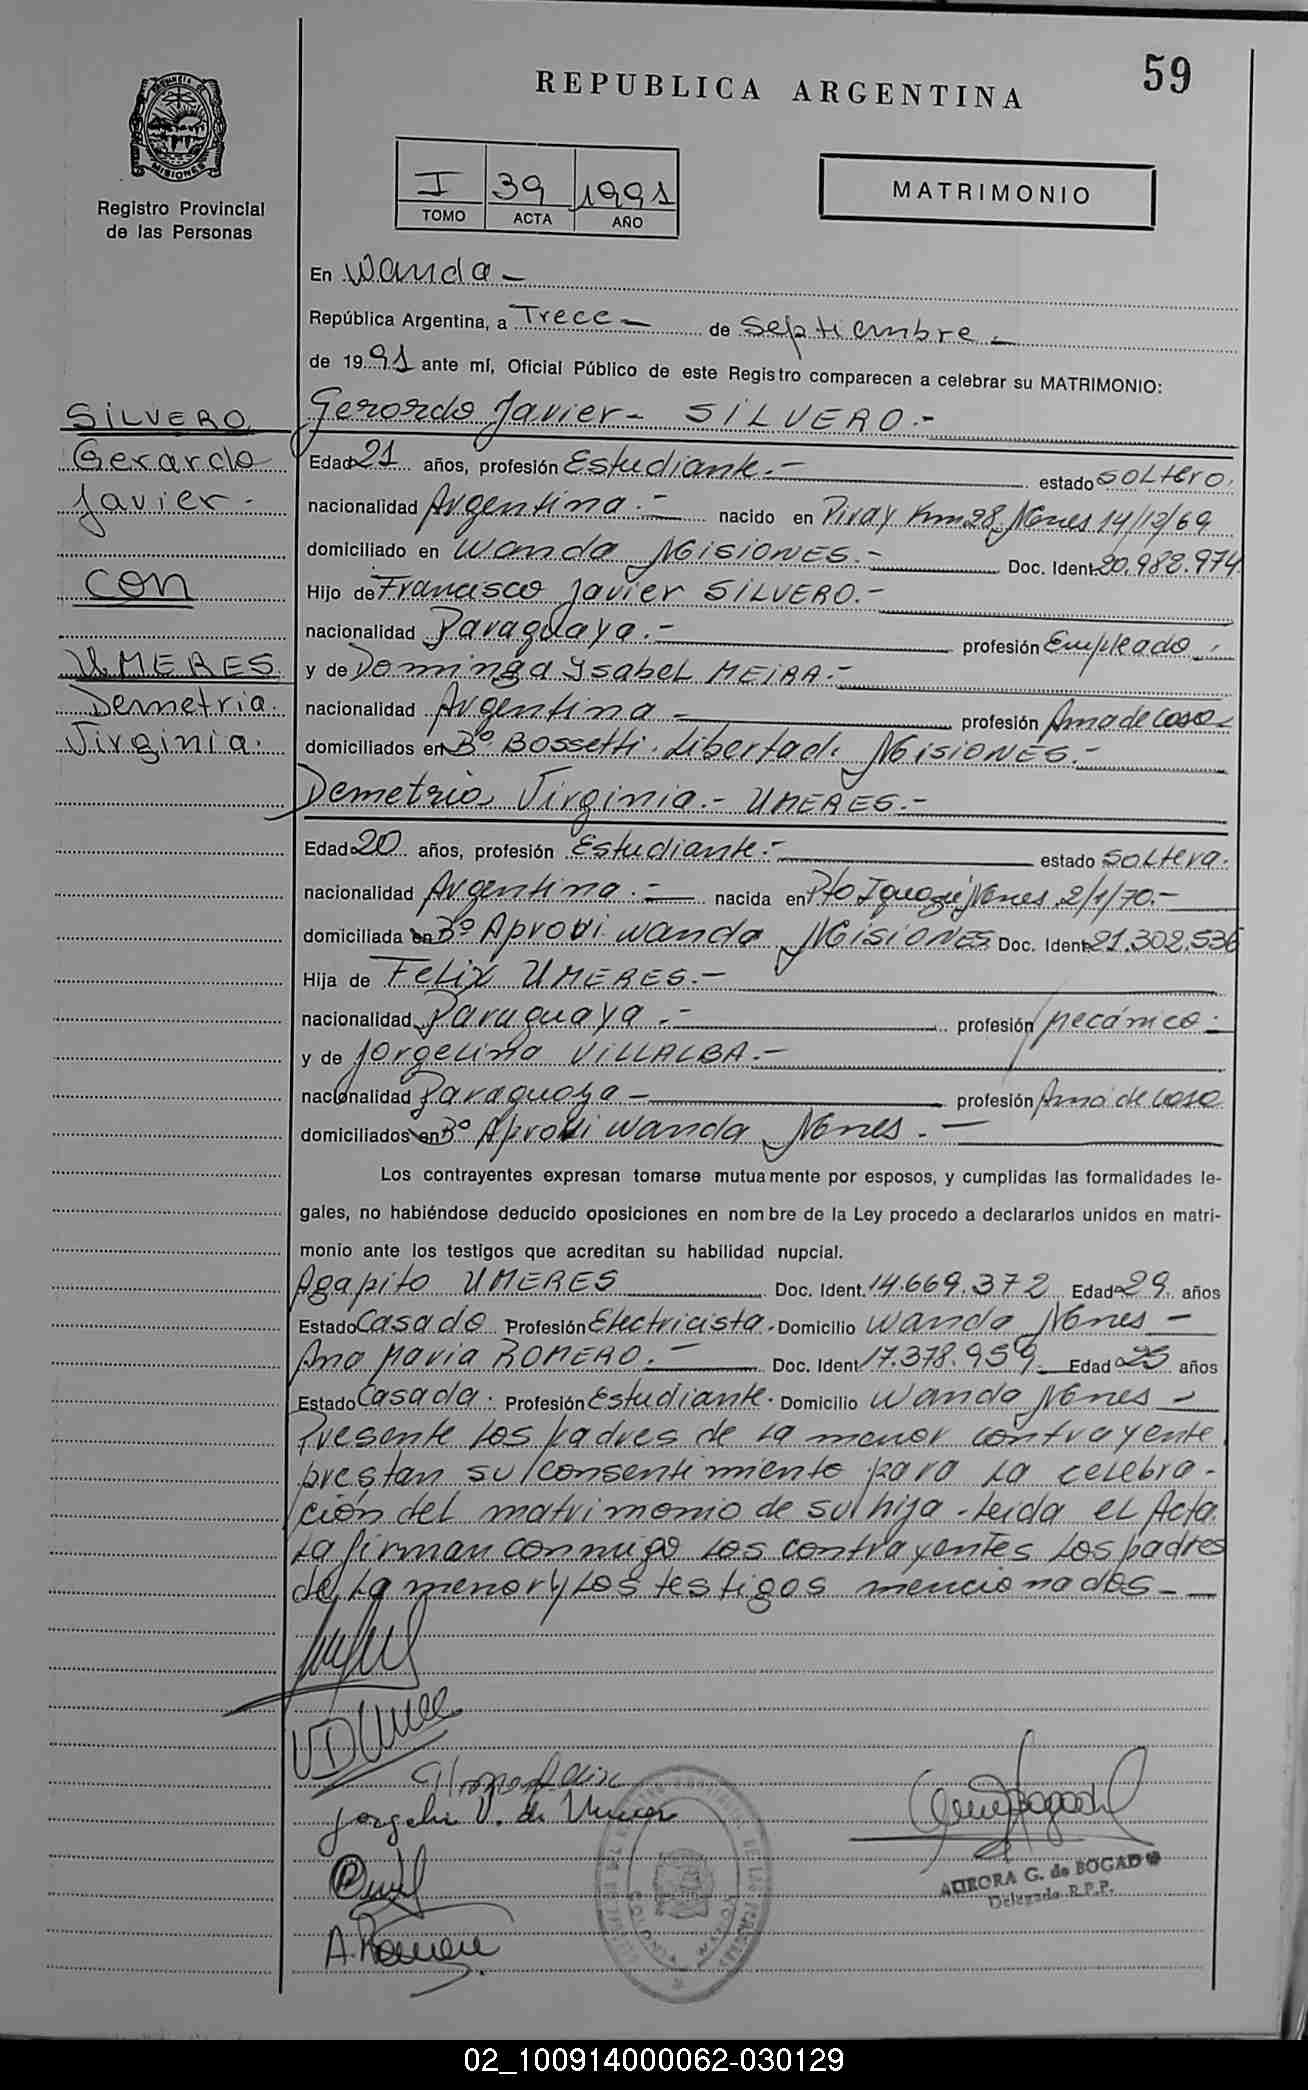 59
REPUBLICA ARGENTINA
MISIONES
Registro Provincial
de las Personas
I 39 1991
TOMO ACTA AÑO
MATRIMONIO
En Wanda -
República Argentina, a Trece - de Septiembre -
de 1991 ante mí, Oficial Público de este Registro comparecen a celebrar su MATRIMONIO:
SILVERO
Gerardo
Javier -
con
UMERES
Demetria
Virginia.
Gerardo Javier - SILVERO.-
Edad 21 años, profesión Estudiante.- estado soltero.
nacionalidad Argentina.- nacido en Piray Km 28 Mnes 14/12/69
domiciliado en Wanda MISIONES.- Doc. Ident. 20.982.974
Hijo de Francisco Javier SILVERO.-
nacionalidad Paraguaya.- profesión Empleado.
y de Dominga Ysabel MEIRA.-
nacionalidad Argentina - profesión Ama de casa
domiciliados en Bº BOSSETTI. Libertad. MISIONES.-
Demetria Virginia.- UMERES.-
Edad 20 años, profesión Estudiante.- estado soltera.
nacionalidad Argentina.- nacida en Pto Iguazú Mnes 2/1/70.-
domiciliada en Bº Aprovi Wanda MISIONES Doc. Ident. 21.302.536
Hija de Felix UMERES.-
nacionalidad Paraguaya.- profesión mecánico.
y de Jorgelina VILLALBA.-
nacionalidad Paraguaya - profesión Ama de casa
domiciliados en Bº Aprovi Wanda Mnes.-
Los contrayentes expresan tomarse mutuamente por esposos, y cumplidas las formalidades le-
gales, no habiéndose deducido oposiciones en nombre de la Ley procedo a declararlos unidos en matri-
monio ante los testigos que acreditan su habilidad nupcial.
Agapito UMERES Doc. Ident. 14.669.372 Edad 29 años
Estado Casado Profesión Electricista. Domicilio Wanda Mnes -
Ana Maria ROMERO.- Doc. Ident. 17.378.959 Edad 25 años
Estado Casada. Profesión Estudiante. Domicilio Wanda Mnes -
Presente los padres de la menor contrayente
prestan su consentimiento para la celebra-
ción del matrimonio de su hija - Leida el Acta
la firman conmigo los contrayentes los padres
de la menor y los testigos mencionados -
Jorgelin V. de Umeres
A. Romero
AURORA G. de BOGADO
Delegada R.P.P.
02_100914000062-030129